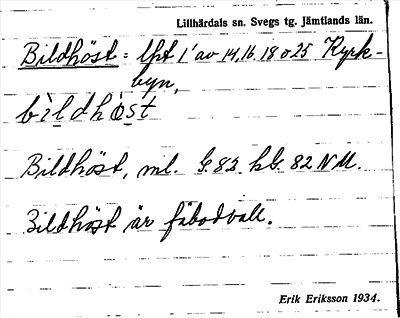 Lillhärdals sn. Svegs tg. Jämtlands län.
Bildhöst = lht 1' av 14, 16, 18 o 25 Kyrk-
byn,
bìldhö̀st
Bildhöst, ml. G. 82 hG 82 NM.
Bildhöst är fäbodvall.
Erik Eriksson 1934.